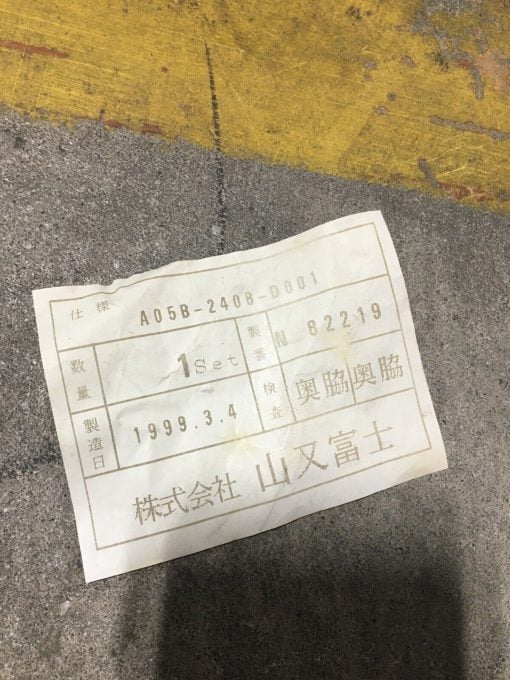 仕様 A05B-2408-D001
数量 1Set 製番 N 82219
製造日 1999.3.4 検査 奥脇 奥脇
株式会社 山又富士